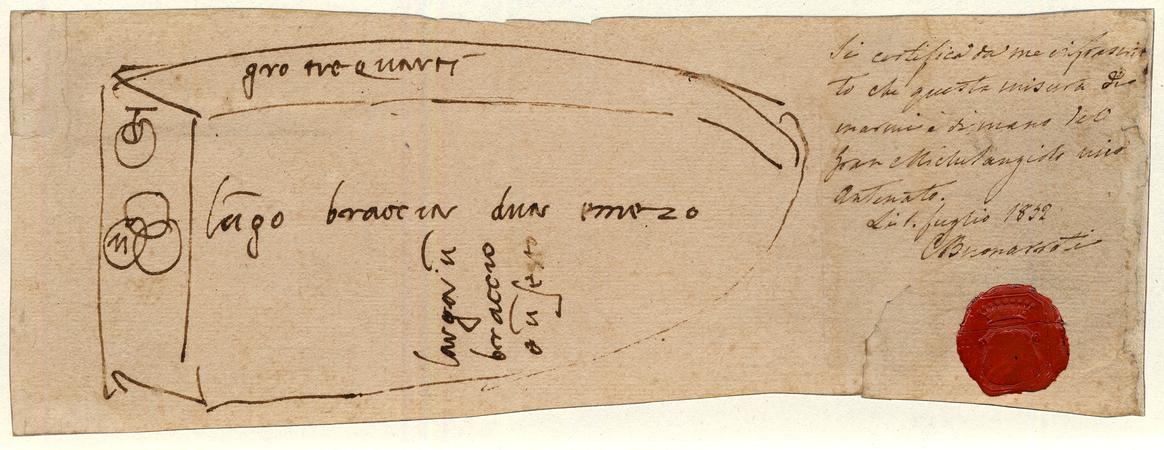 gro tre quarti
lũgo braccia dua emezo
larga ũ
braccio
e ũ sesto
Si certifica da me infrascrit
to che questa misura di
marmi è di mano del
Gran Michelangiolo mio
Antenato.
Li 1. luglio 1832
CBuonarroti